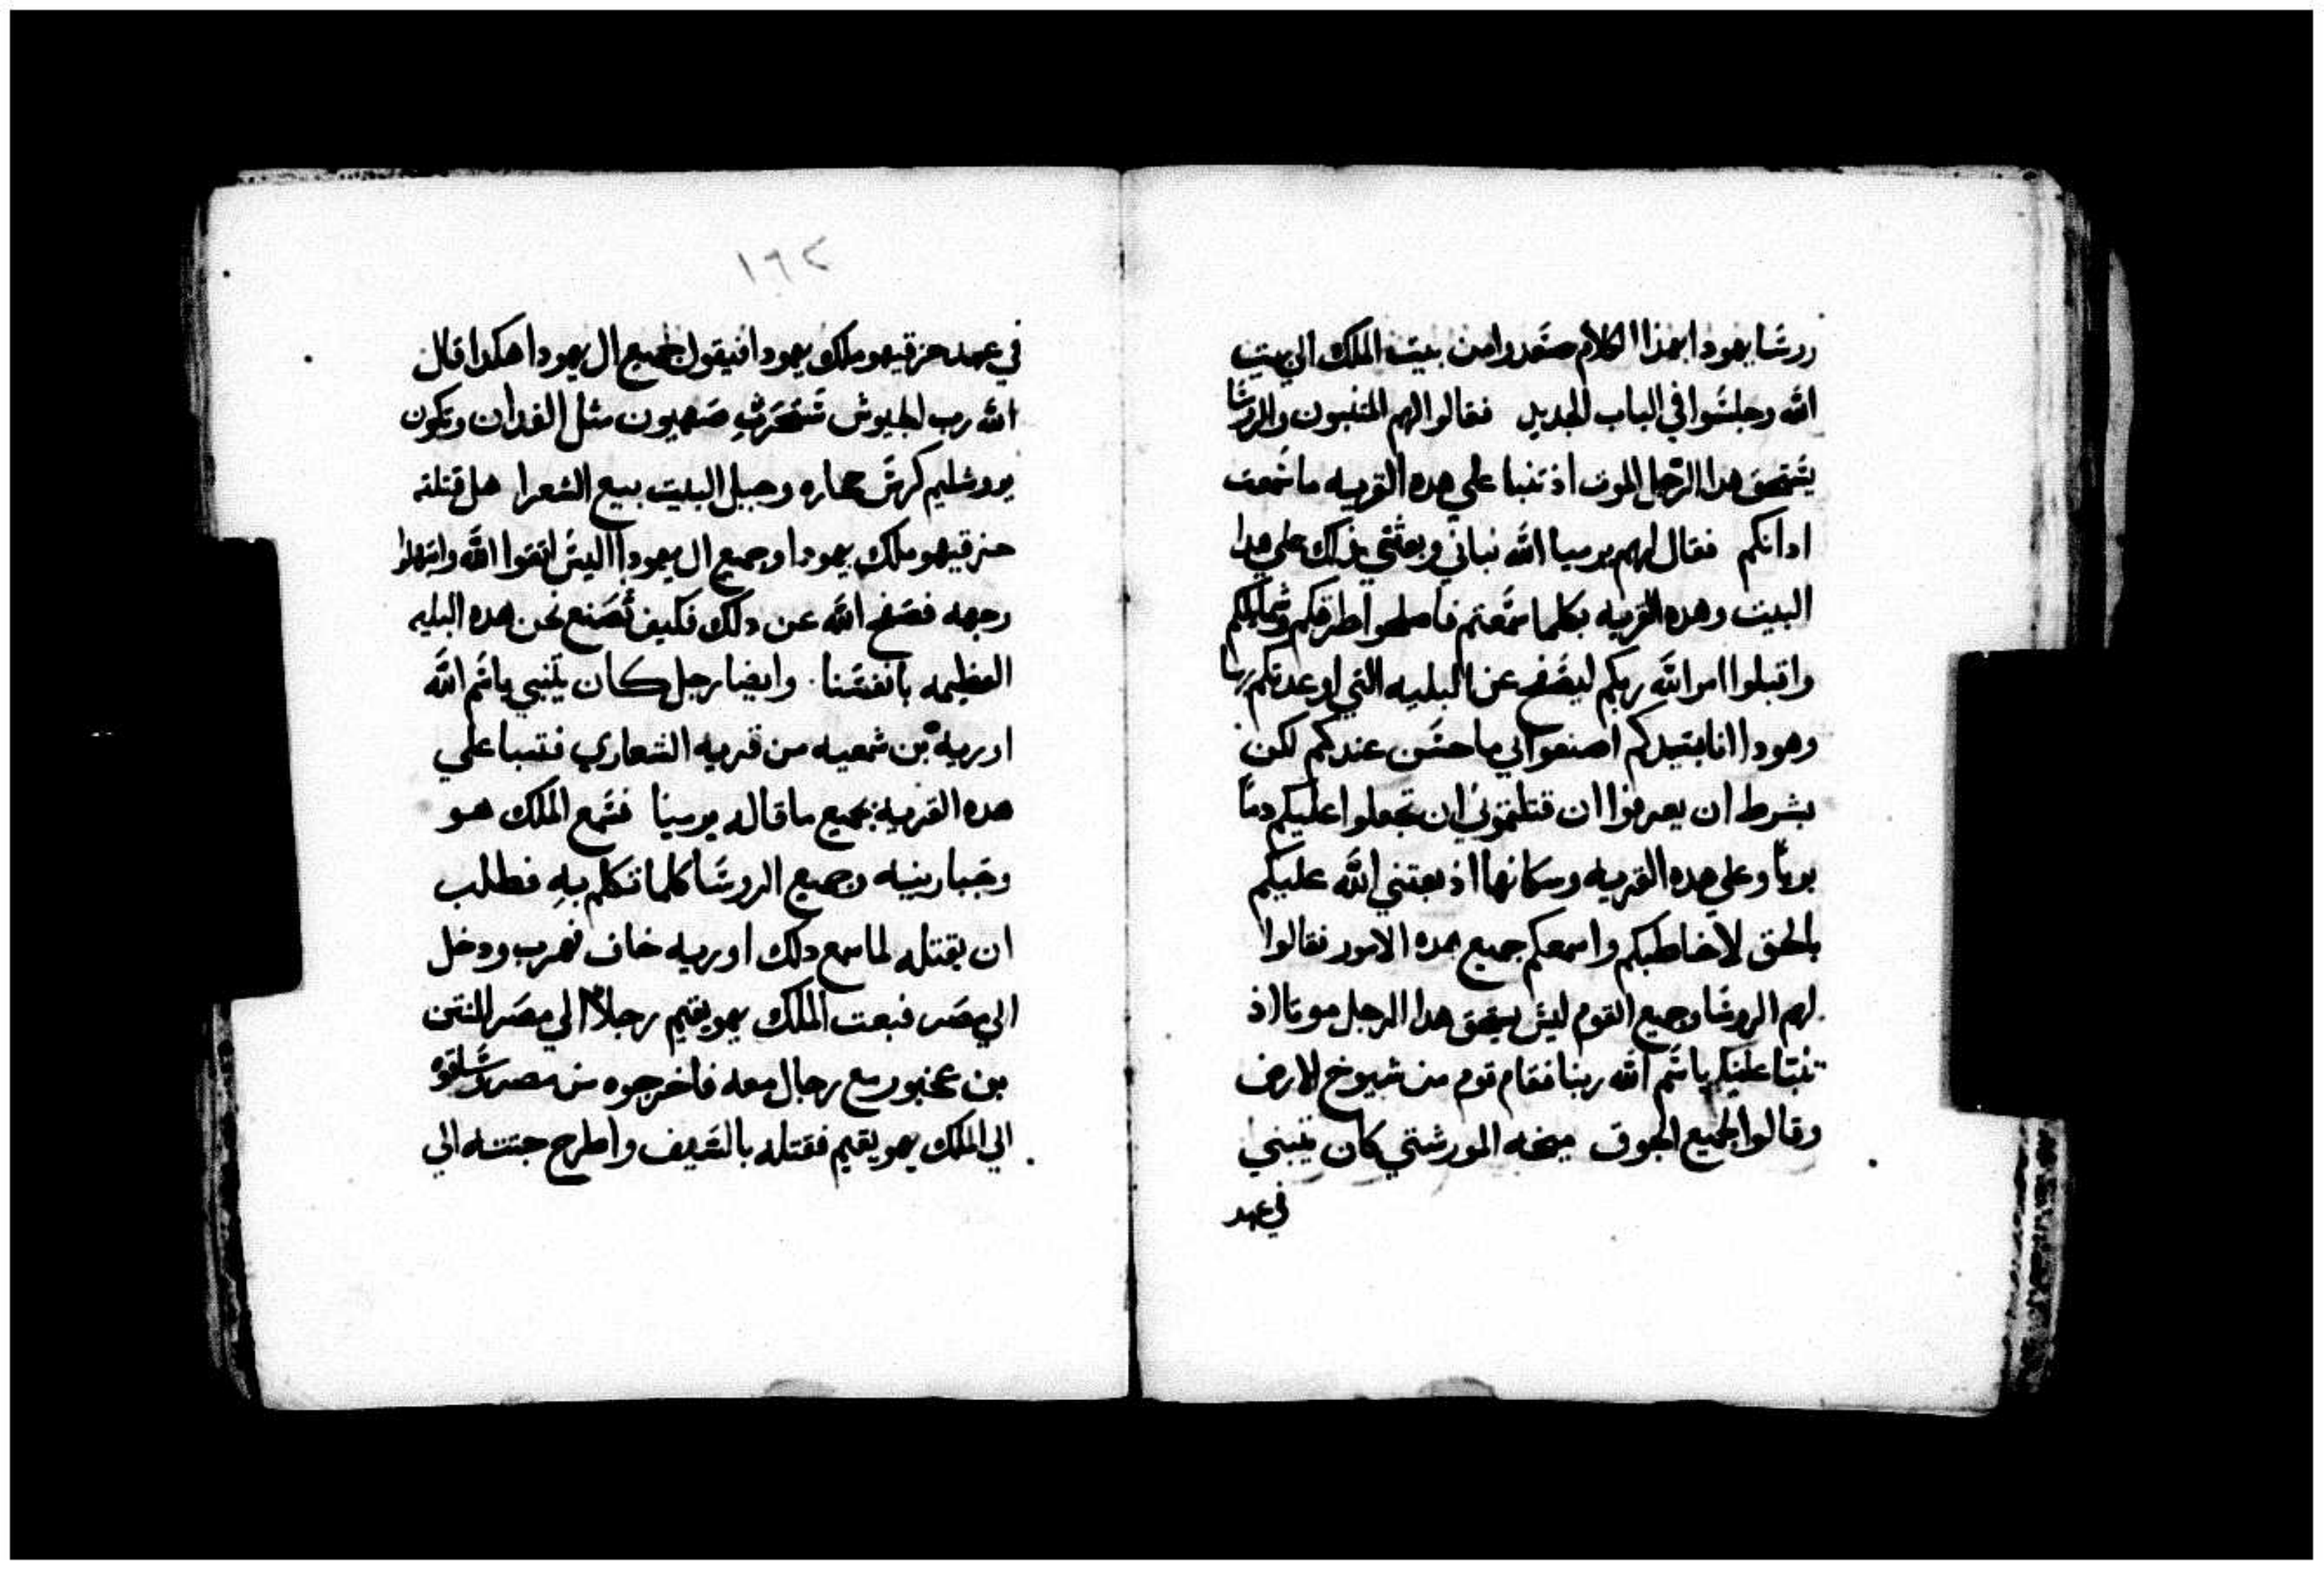 روسا يهودا بهذا الكلام صعدوا من بيت الملك الي بيت
الله وجلسوا في الباب الجديد فقالوا لهم المتنبون والروسا
يستحق هدا الرجل الموت اذ تنبا علي هده القريه ما سمعت
ادانكم فقال لهم يرميا الله نباني وبعثني بذلك علي هدا
البيت وهده القريه بكلما سمعتم فاصلحوا طرقكم وشمايلكم
واقبلوا امر الله ربكم ليصفح عن البليه التي اوعدتكم بها
وهودا انا بيدكم اصنعوا بي ما حسن عندكم لكن
بشرط ان يعرفوا ان قتلتموني ان تجعلوا عليكم دمًا
بريًا وعلي هده القريه وسكانها اذ بعتني الله عليكم
بالحق لاخاطبكم واسمعكم جميع هده الامور فقالوا
لهم الروسا وجميع القوم ليس يستحق هدا الرجل موتا اذ
تنبا علينا باسم الله ربنا فقام قوم من شيوخ الارض
وقالوا لجميع الجوق ميخه المورشتي كان يتنبي
في عهد
١٦٢
في عهد حزقيهو ملك يهودا فيقول لجميع ال يهودا هكدا قال
الله رب الجيوش ستحرث صهيون مثل الفدان وتكون
يروشليم كرس حجاره وجبل البيت بيع الشعرا هل قتله
حزقيهو ملك يهودا وجميع ال يهودا اليس اتقوا الله وابتهلوا
وجهه فصفح الله عن دلك فكيف نصنع نحن هده البليه
العظيمه بانفسنا وايضا رجل كان يتنبي باسم الله
اوريه بن شمعيه من قريه الشعاري فتنبا علي
هده القريه بجميع ما قاله يرميا فسمع الملك هو
وجبارينيه وجميع الروسا كلما تكلم به فطلب
ان يقتله لما سمع دلك اوريه خاف فهرب ودخل
الي مصر فبعت الملك يهويقيم رجلا الي مصر النتن
بن عخبور مع رجال معه فاخرجوه من مصر وساقوه
الي الملك يهويقيم فقتله بالسيف واطرح جتته الي